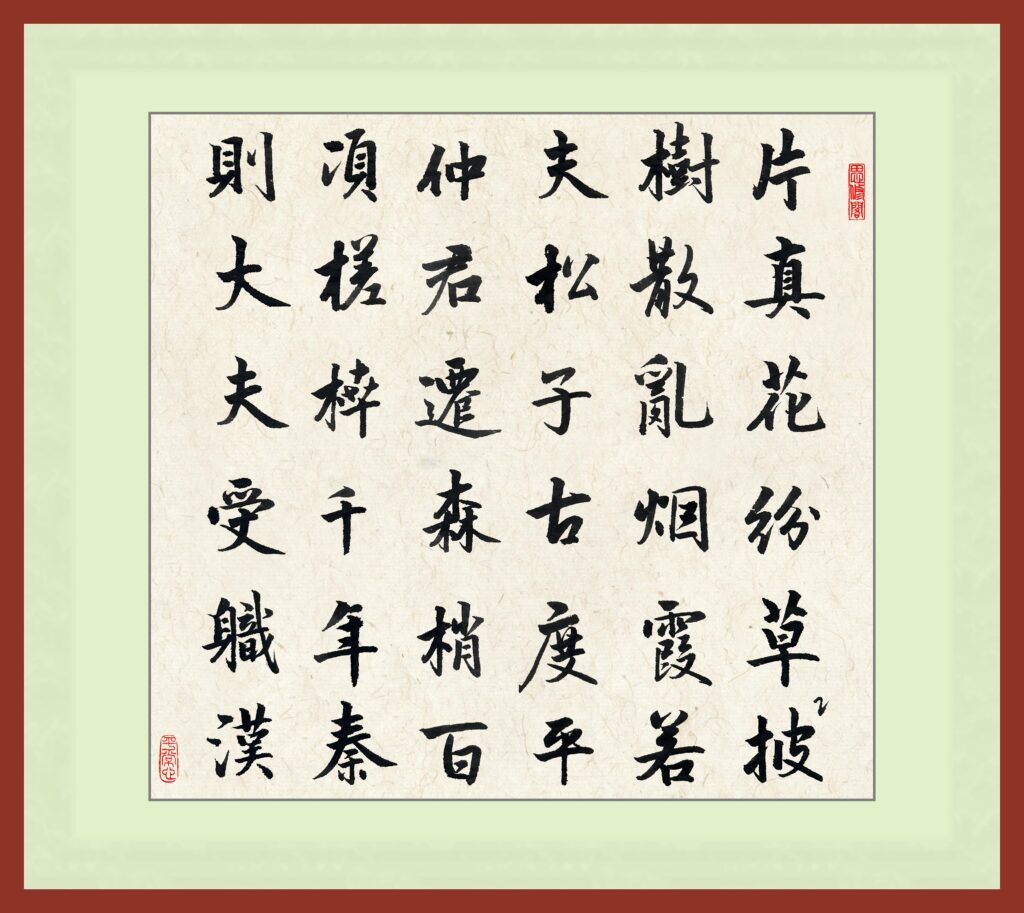 片真花紛草披
樹散亂烟霞若
夫松子古度平
仲君遷森梢百
頃槎千年秦
則大夫受軄漢
平常心